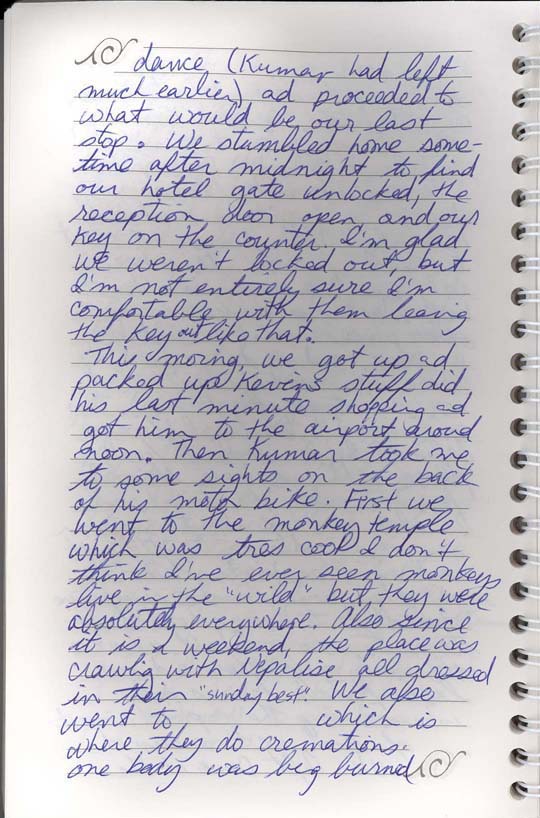 dance (Kumar had left
much earlier) ad proceeded to
what would be our last
stop. We stumbled home some-
time after midnight to find
our hotel gate unlocked, the
reception door open and our
key on the counter. I'm glad
we weren't locked out, but
I'm not entirely sure I'm
comfortable with them leaving
the key out like that.
This moring, we got up ad
packed up Kevin's stuff did
his last minute shopping ad
got him to the airport aroud
noon. Then Kumar took me
to some sights on the back
of his moto bike. First we
went to the monkey temple
which was tres cool I don't
think I've ever seen monkeys
live in the "wild" but they were
absolutely everywhere. Also since
it is a weekend, the place was
crawlig with Nepalise all dressed
in their "sunday best". We also
went to which is
where they do cremations.
one body was beig burned